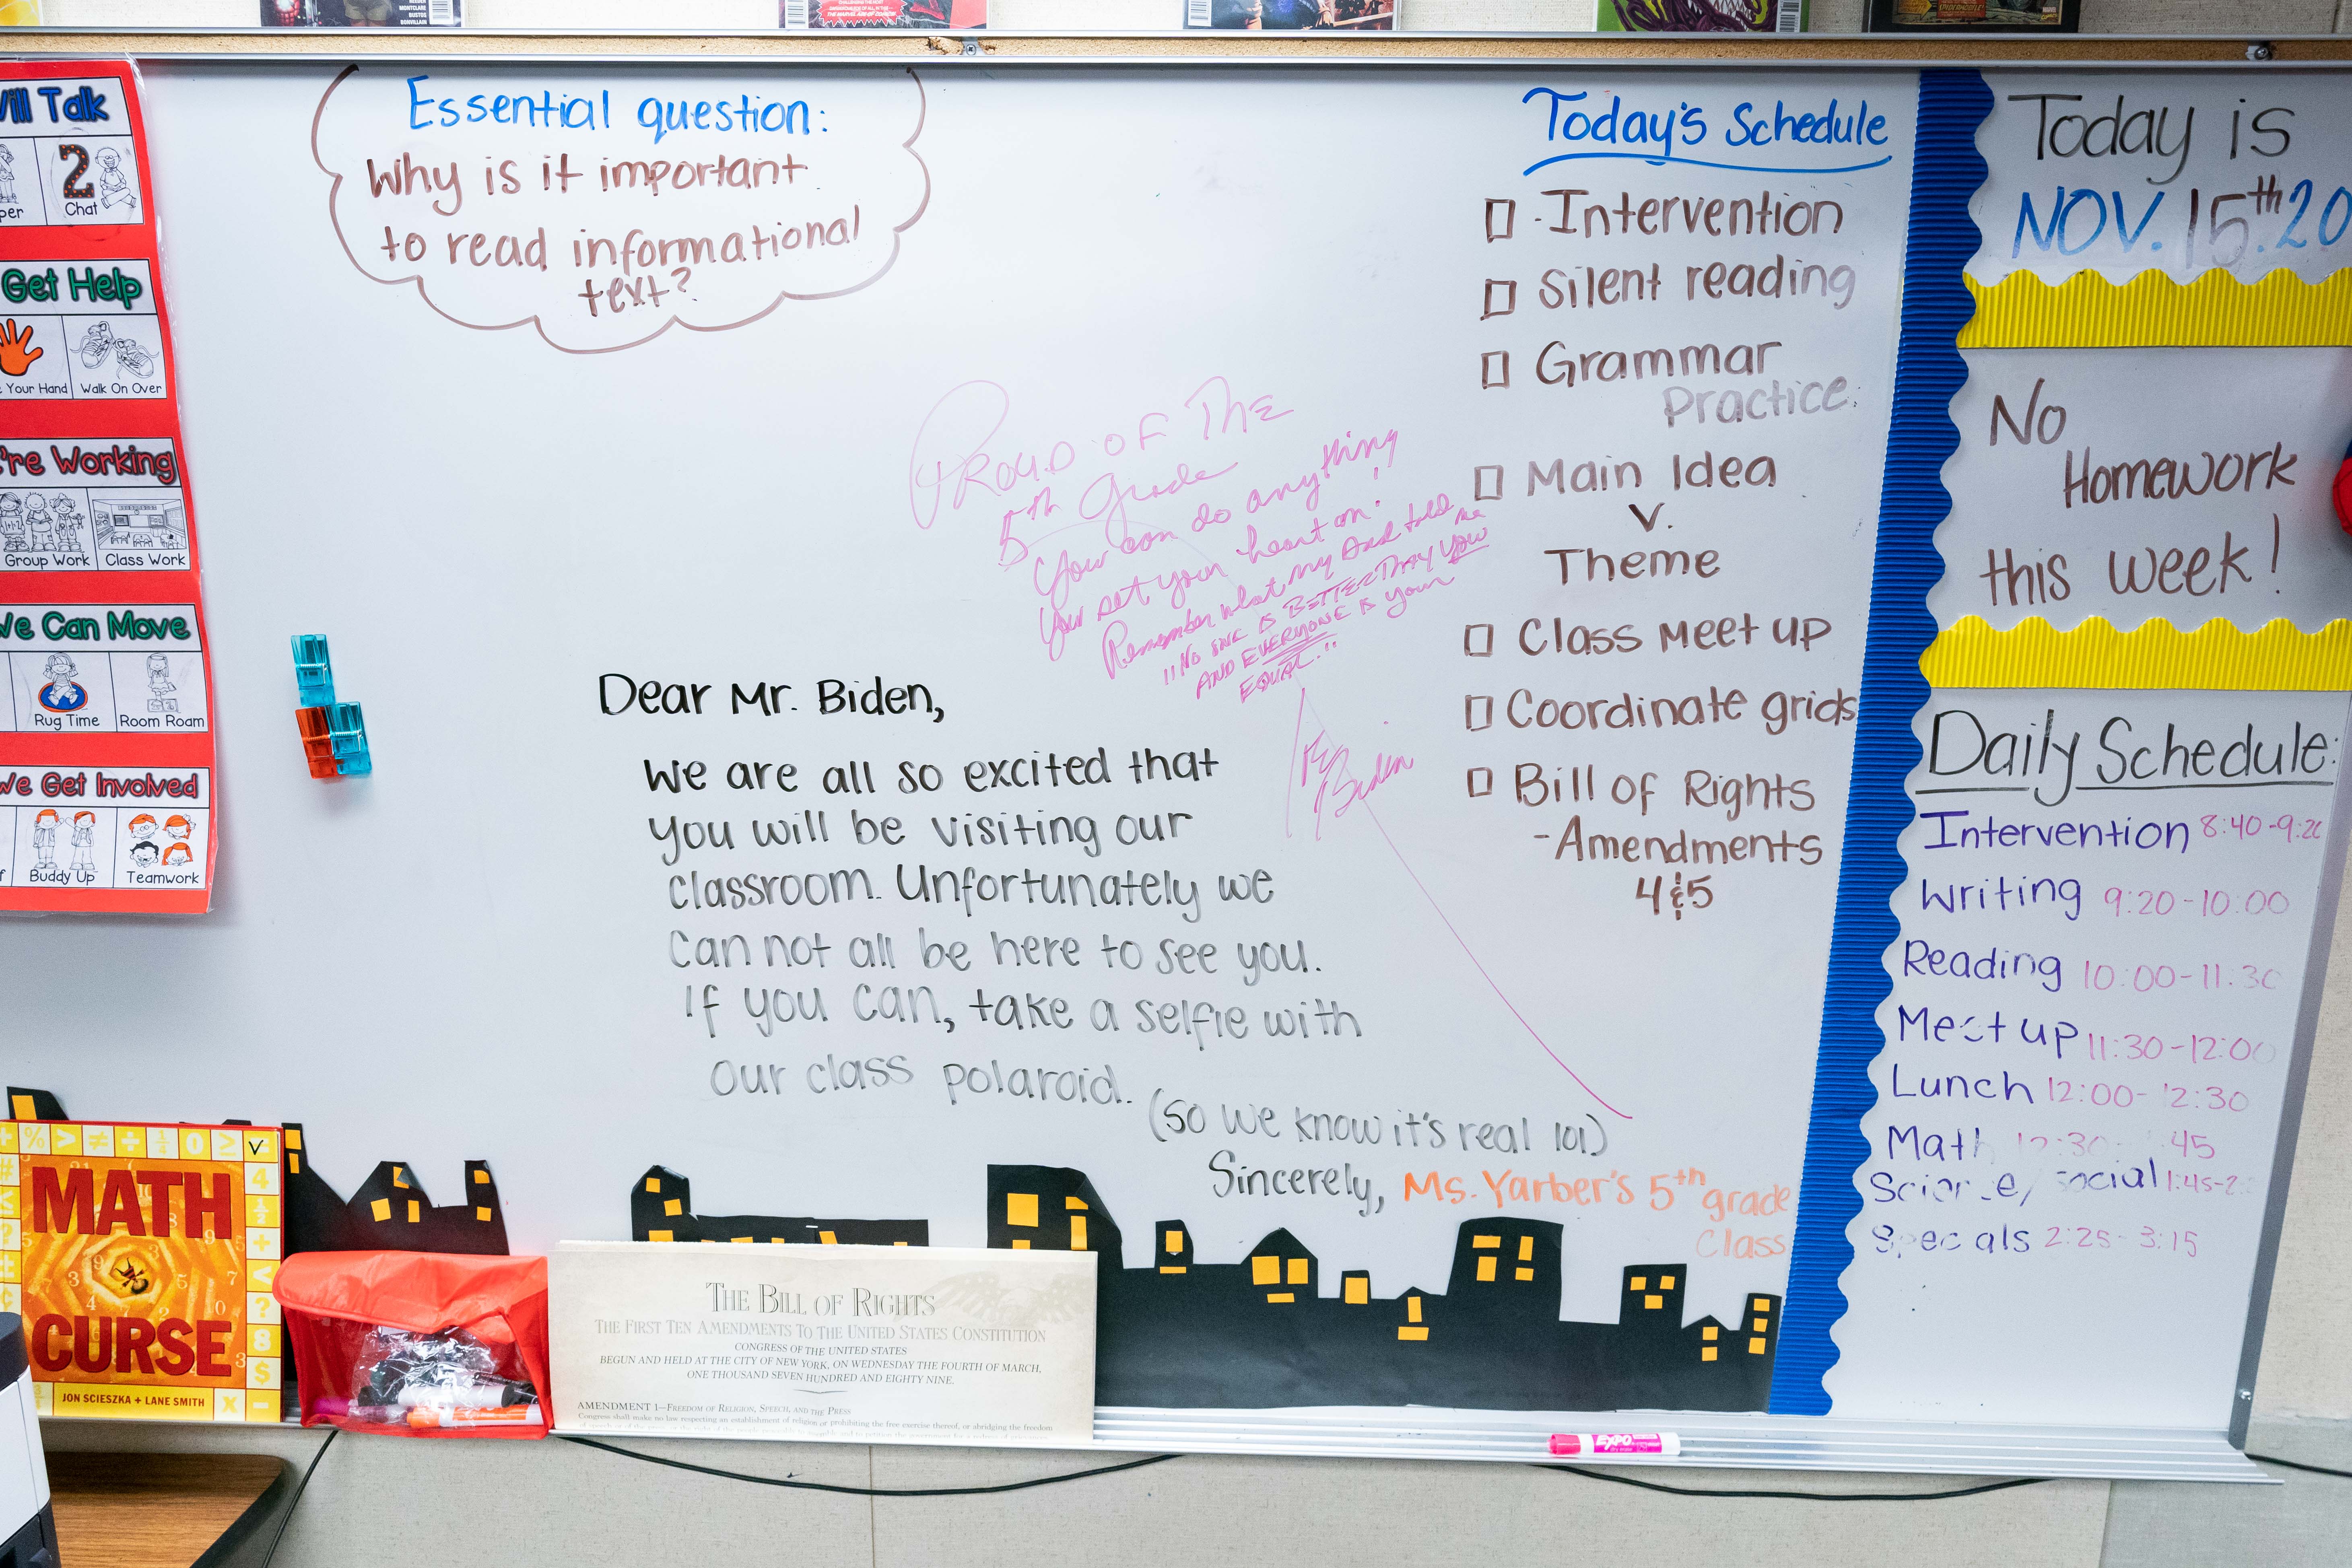 Will Talk
2
Chat
Get Help
Your Hand
Walk On Over
're Working
Group Work
Class Work
We Can Move
Rug Time
Room Roam
We Get Involved
Buddy Up
Teamwork
Essential question:
Why is it important
to read informational
text?
Proud of The
5th Grade
You can do anything
You set your heart on!
Remember what my Dad told me
"No one is BETTER Than You
AND EVERYONE is your
EQUAL."
Biden
Dear Mr. Biden,
We are all so excited that
you will be visiting our
classroom. Unfortunately we
can not all be here to see you.
If you can, take a selfie with
our class polaroid.
(So we know it's real lol)
Sincerely, Ms. Yarber's 5th grade
class
Today's Schedule
Intervention
Silent reading
Grammar
Practice
Main Idea
v.
Theme
Class Meet up
Coordinate grids
Bill of Rights
-Amendments
4 & 5
Today is
NOV. 15th. 20
No
Homework
this week!
Daily Schedule:
Intervention 8:40-9:20
Writing 9:20-10:00
Reading 10:00-11:30
Meet up 11:30-12:00
Lunch 12:00-12:30
Math 12:30- :45
Science/Social 1:45-2:
Specials 2:25-3:15
MATH
CURSE
JON SCIESZKA + LANE SMITH
THE BILL OF RIGHTS
THE FIRST TEN AMENDMENTS TO THE UNITED STATES CONSTITUTION
CONGRESS OF THE UNITED STATES
BEGUN AND HELD AT THE CITY OF NEW YORK, ON WEDNESDAY THE FOURTH OF MARCH,
ONE THOUSAND SEVEN HUNDRED AND EIGHTY NINE.
AMENDMENT 1—FREEDOM OF RELIGION, SPEECH, AND THE PRESS
Congress shall make no law respecting an establishment of religion or prohibiting the free exercise thereof, or abridging the freedom
EXPO